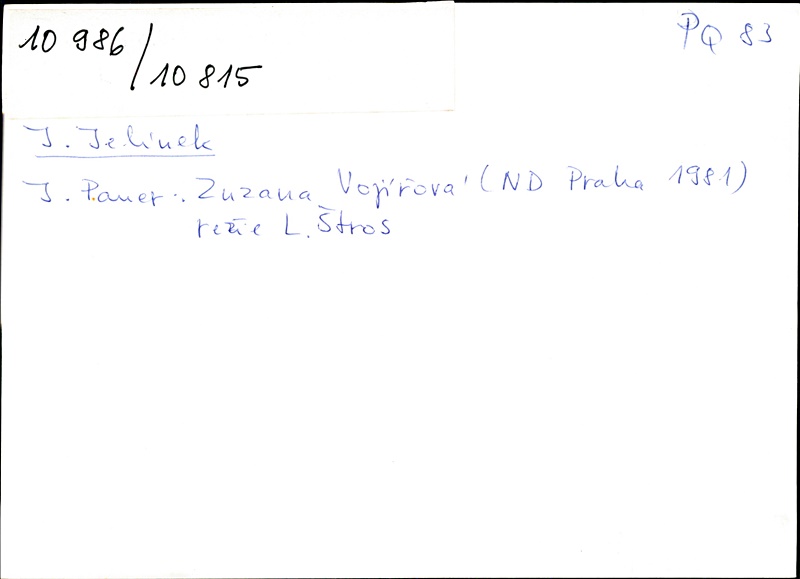 10 986/10 815
PQ 83
J. Jelínek
J. Pauer: Zuzana Vojířová (ND Praha 1981)
režie L. Štros